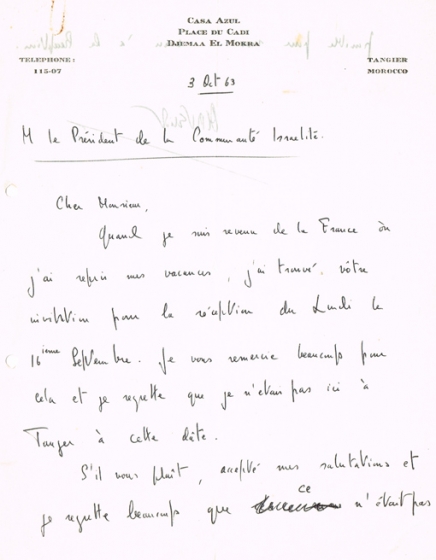 CASA AZUL
PLACE DU CADI
DJEMAA EL MOKRA
TELEPHONE :
115-07
TANGIER
MOROCCO
3 Oct 63
M le Président de la Communauté Israelité.
Cher Monsieur,
Quand je suis revenu de la France ôn
j'ai repris mes vacances, j'ai trouvé vôtre
invitation pour la réception du Lundi le
16ième Septembre. Je vous remercie beaucoup pour
cela et je regrette que je n'étais pas ici à
Tanger à cette dâte.
S'il vous plait, accepté mes salutations et
je regrette beaucoup que ce n'était pas